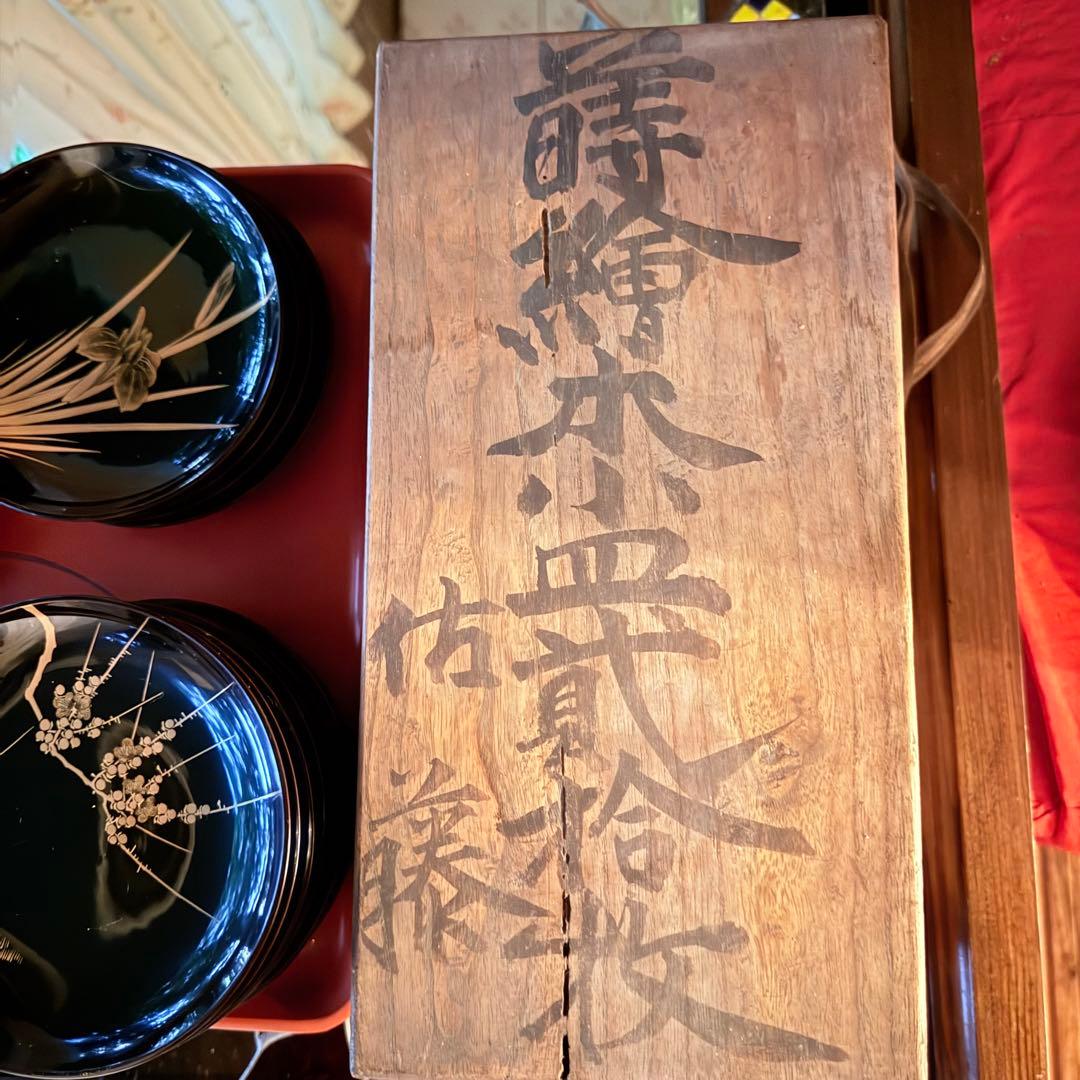 蒔繪木小皿貳拾枚
佐藤